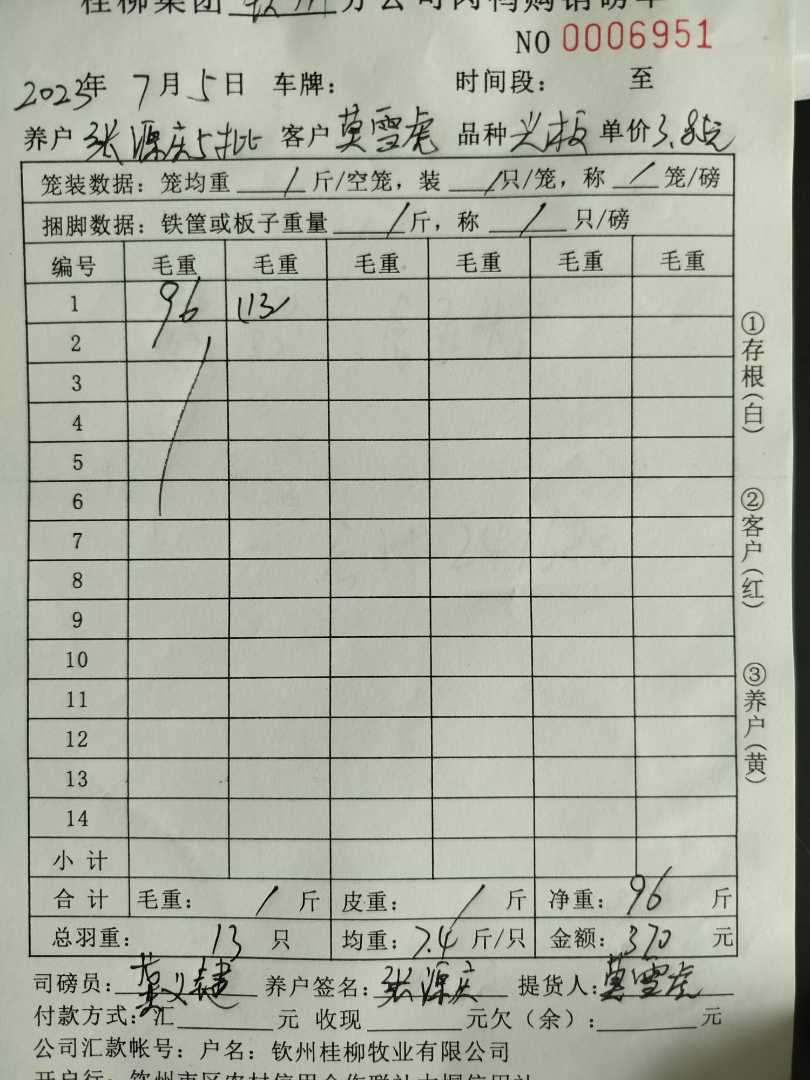 桂柳集团 钦州 分公司肉鸭购销磅单
NO 0006951
2023年 7月5日 车牌: 时间段: 至
养户 张源庆5批 客户 莫雪虎 品种 单价3.85元
笼装数据: 笼均重 / 斤/空笼, 装 / 只/笼, 称 / 笼/磅
捆脚数据: 铁筐或板子重量 / 斤, 称 / 只/磅
编号 毛重 毛重 毛重 毛重 毛重 毛重
1 96 (13)
2
3
4
5
6
7
8
9
10
11
12
13
14
小计
合计 毛重: / 斤 皮重: / 斤 净重: 96 斤
总羽重: 13 只 均重: 7.4 斤/只 金额: 370 元
司磅员: 养户签名: 张源庆 提货人: 莫雪虎
付款方式: 汇 元 收现 元欠(余): 元
公司汇款帐号: 户名: 钦州桂柳牧业有限公司
开户行: 钦州市区农村信用合作联社大埇信用社
①存根(白)
②客户(红)
③养户(黄)